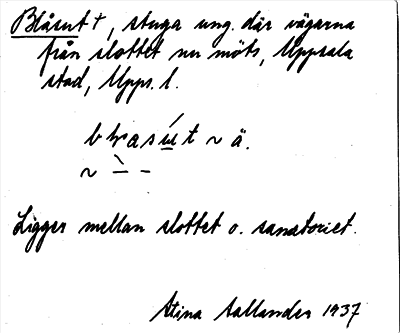 Blåsut †, stuga ung. där vägarna
från slottet nu möts, Uppsala
stad, Upps. l.
~ ä.
Ligger mellan slottet o. sanatoriet.
Stina Sallander 1937